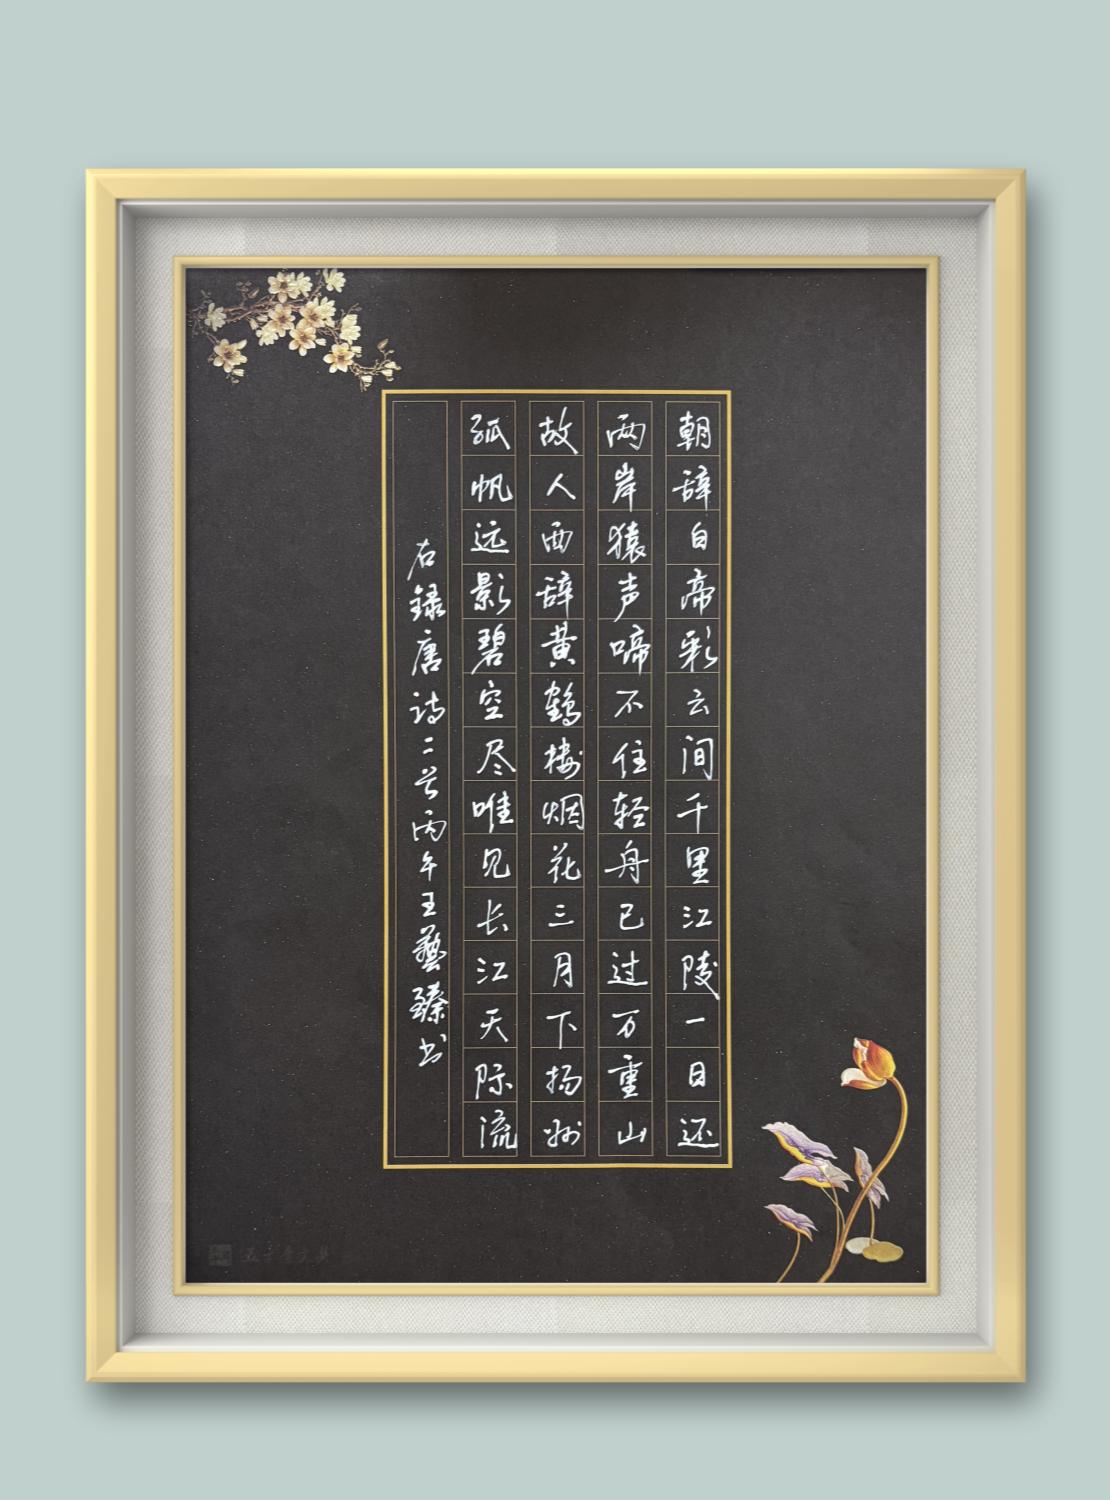 朝辞白帝彩云间千里江陵一日还
两岸猿声啼不住轻舟已过万重山
故人西辞黄鹤楼烟花三月下扬州
孤帆远影碧空尽唯见长江天际流
右录唐诗二首丙午王藝臻书